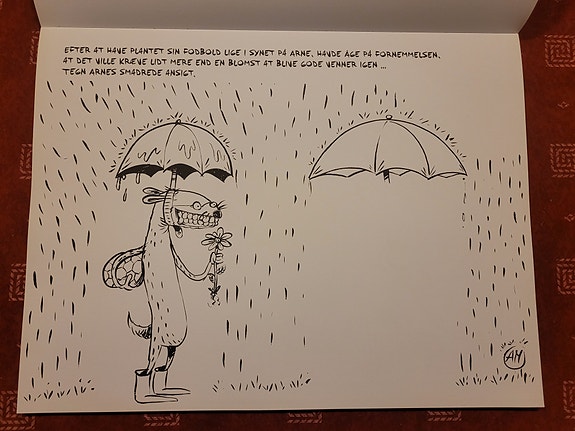 EFTER AT HAVE PLANTET SIN FODBOLD LIGE I SYNET PÅ ARNE, HAVDE ÅGE PÅ FORNEMMELSEN,
AT DET VILLE KRÆVE LIDT MERE END EN BLOMST AT BLIVE GODE VENNER IGEN ...
TEGN ARNES SMADREDE ANSIGT.
AH